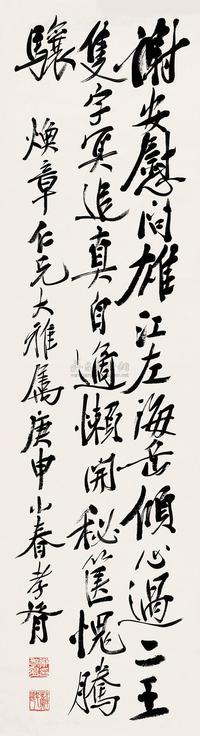 謝安慰問雄江左海岳傾心過二王
隻字冥追真自適懶開秘篋愧騰
驤
煥章仁兄大雅属庚申小春孝胥